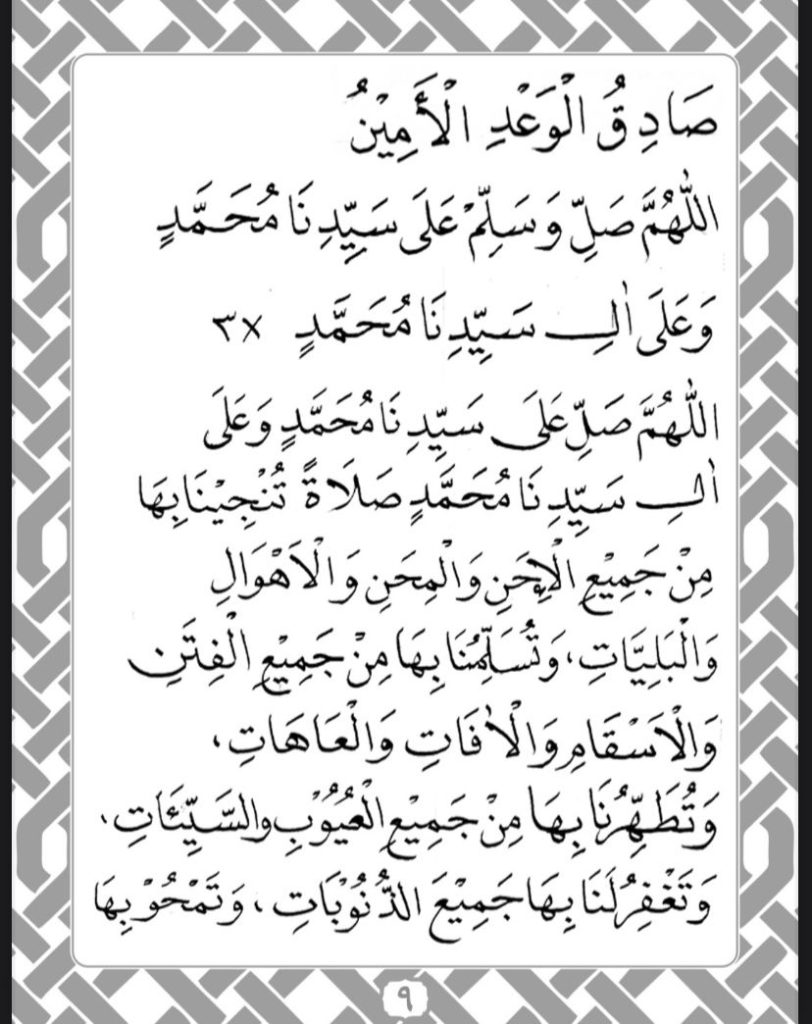 صَادِقُ الْوَعْدِ الْأَمِيْنُ
اللّٰهُمَّ صَلِّ وَسَلِّمْ عَلَى سَيِّدِنَا مُحَمَّدٍ
وَعَلَى اٰلِ سَيِّدِنَا مُحَمَّدٍ ٣×
اللّٰهُمَّ صَلِّ عَلَى سَيِّدِنَا مُحَمَّدٍ وَعَلَى
اٰلِ سَيِّدِنَا مُحَمَّدٍ صَلَاةً تُنْجِيْنَا بِهَا
مِنْ جَمِيْعِ الْإِحَنِ وَالْمِحَنِ وَالْاَهْوَالِ
وَالْبَلِيَّاتِ، وَتُسَلِّمُنَا بِهَا مِنْ جَمِيْعِ الْفِتَنِ
وَالْاَسْقَامِ وَالْاٰفَاتِ وَالْعَاهَاتِ،
وَتُطَهِّرُنَا بِهَا مِنْ جَمِيْعِ الْعُيُوْبِ والسَّيِّئَاتِ،
وَتَغْفِرُ لَنَا بِهَا جَمِيْعَ الذُّنُوْبَاتِ، وَتَمْحُوْ بِهَا
٩